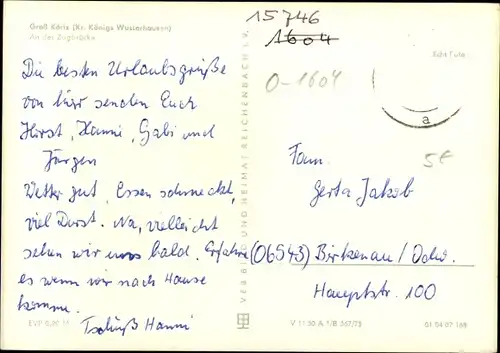 Groß Köris (Kr. Königs Wusterhausen)
An der Zugbrücke
15746
1604
O-1604
Echt Foto
a
5€
Die besten Urlaubsgrüße
von hier senden Euch
Horst, Hanni, Gabi und
Jürgen
Wetter gut, Essen schmeckt,
viel Durst. Na, vielleicht
sehen wir uns bald. Erfahre
es wenn wir nach Hause
komme.
Tschüß Hanni
VEB BILD UND HEIMAT REICHENBACH I. V.
Fam.
Gerta Jakob
(06543) Birkenau / Odw.
Hauptstr. 100
V 11 50 A 1/B 367/73
01 04 07 168